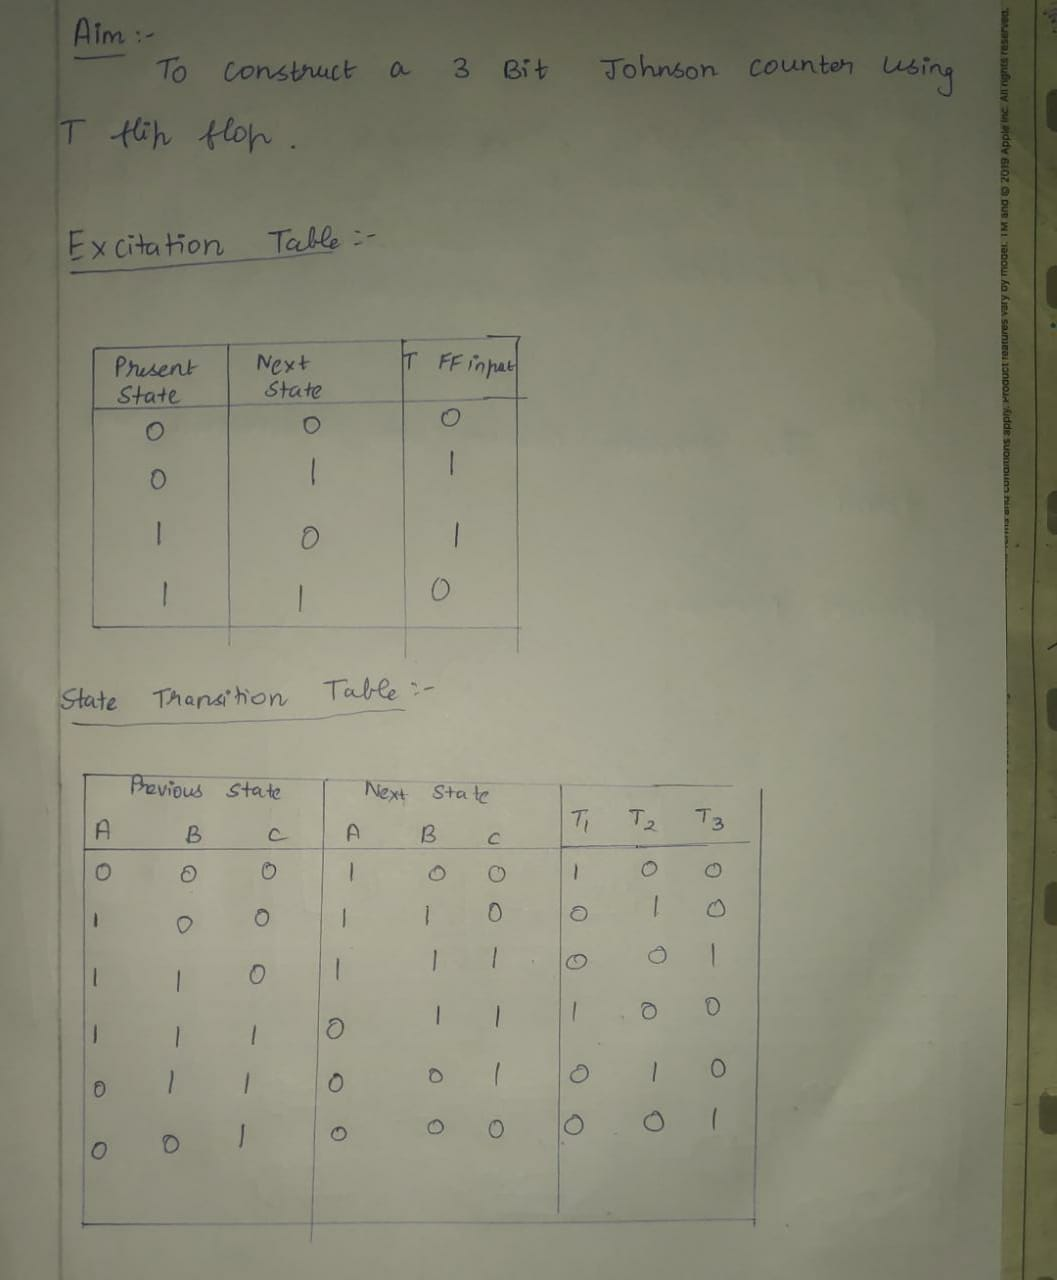 Aim :-
To construct a 3 Bit Johnson counter using
T flip flop.
Excitation Table :-
Present State Next State T FF input
0 0 0
0 1 1
1 0 1
1 1 0
State Transition Table :-
Previous State Next State
A B C A B C T1 T2 T3
0 0 0 1 0 0 1 0 0
1 0 0 1 1 0 0 1 0
1 1 0 1 1 1 0 0 1
1 1 1 0 1 1 1 0 0
0 1 1 0 0 1 0 1 0
0 0 1 0 0 0 0 0 1
terms and conditions apply. Product features vary by model. TM and © 2019 Apple Inc. All rights reserved.